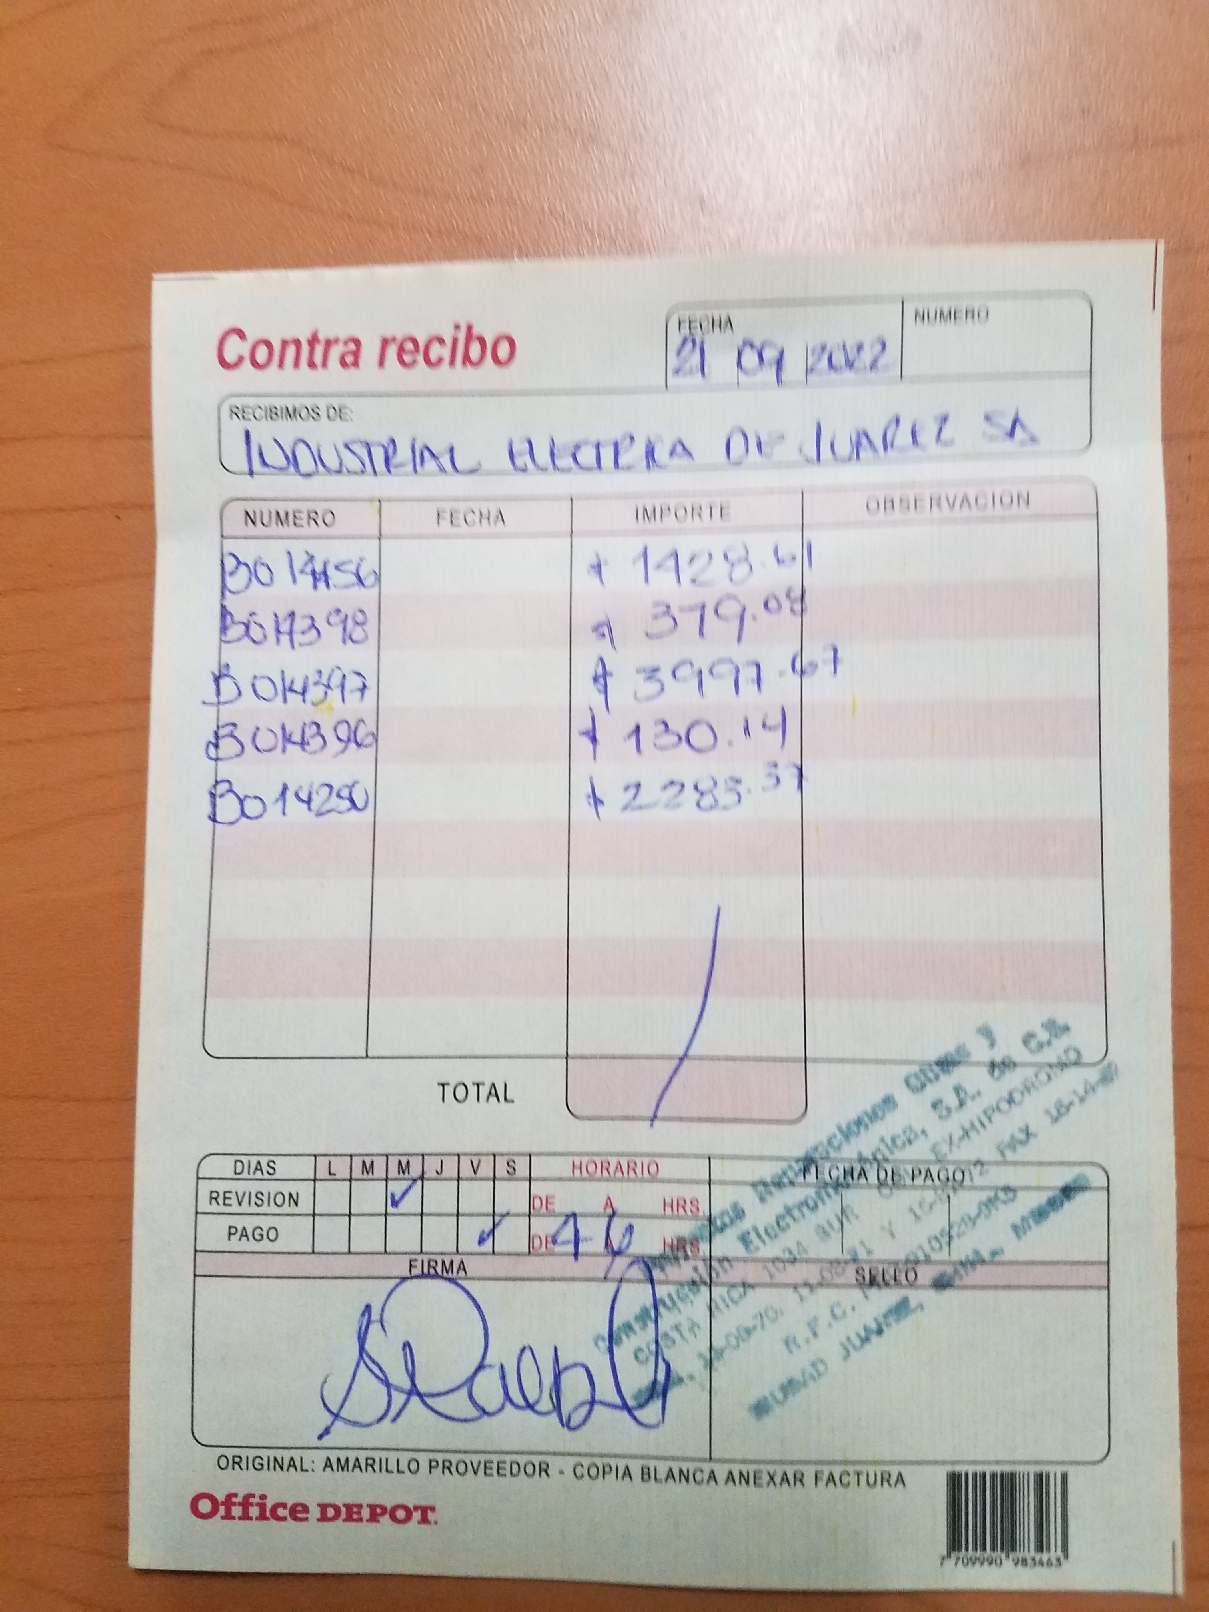 Contra recibo
FECHA
NUMERO
21 09 2022
RECIBIMOS DE:
INDUSTRIAL ELECTRICA DE JUAREZ SA
NUMERO FECHA IMPORTE OBSERVACION
B014456 $ 1428.61
B014398 $ 379.08
B014397 $ 3997.67
B014396 $ 130.14
B014250 $ 2283.37
TOTAL
DIAS L M M J V S HORARIO FECHA DE PAGO
REVISION ✓ DE A HRS
PAGO ✓ DE 4 A 6 HRS
FIRMA SELLO
Reparaciones Obras y
Construcción Electromecánica, S.A. de C.V.
COSTA RICA 1034 SUR EX-HIPODROMO
Y FAX 16-14-
R.F.C.
CIUDAD JUAREZ,
ORIGINAL: AMARILLO PROVEEDOR - COPIA BLANCA ANEXAR FACTURA
Office DEPOT.
7 709990 983463